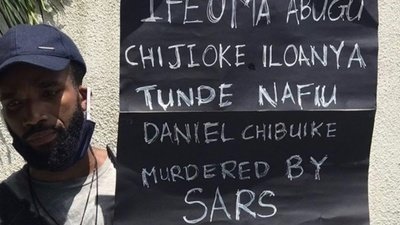 IFEUMA ABUGU
CHIJIOKE ILOANYA
TUNDE NAFIU
DANIEL CHIBUIKE
MURDERED BY
SARS